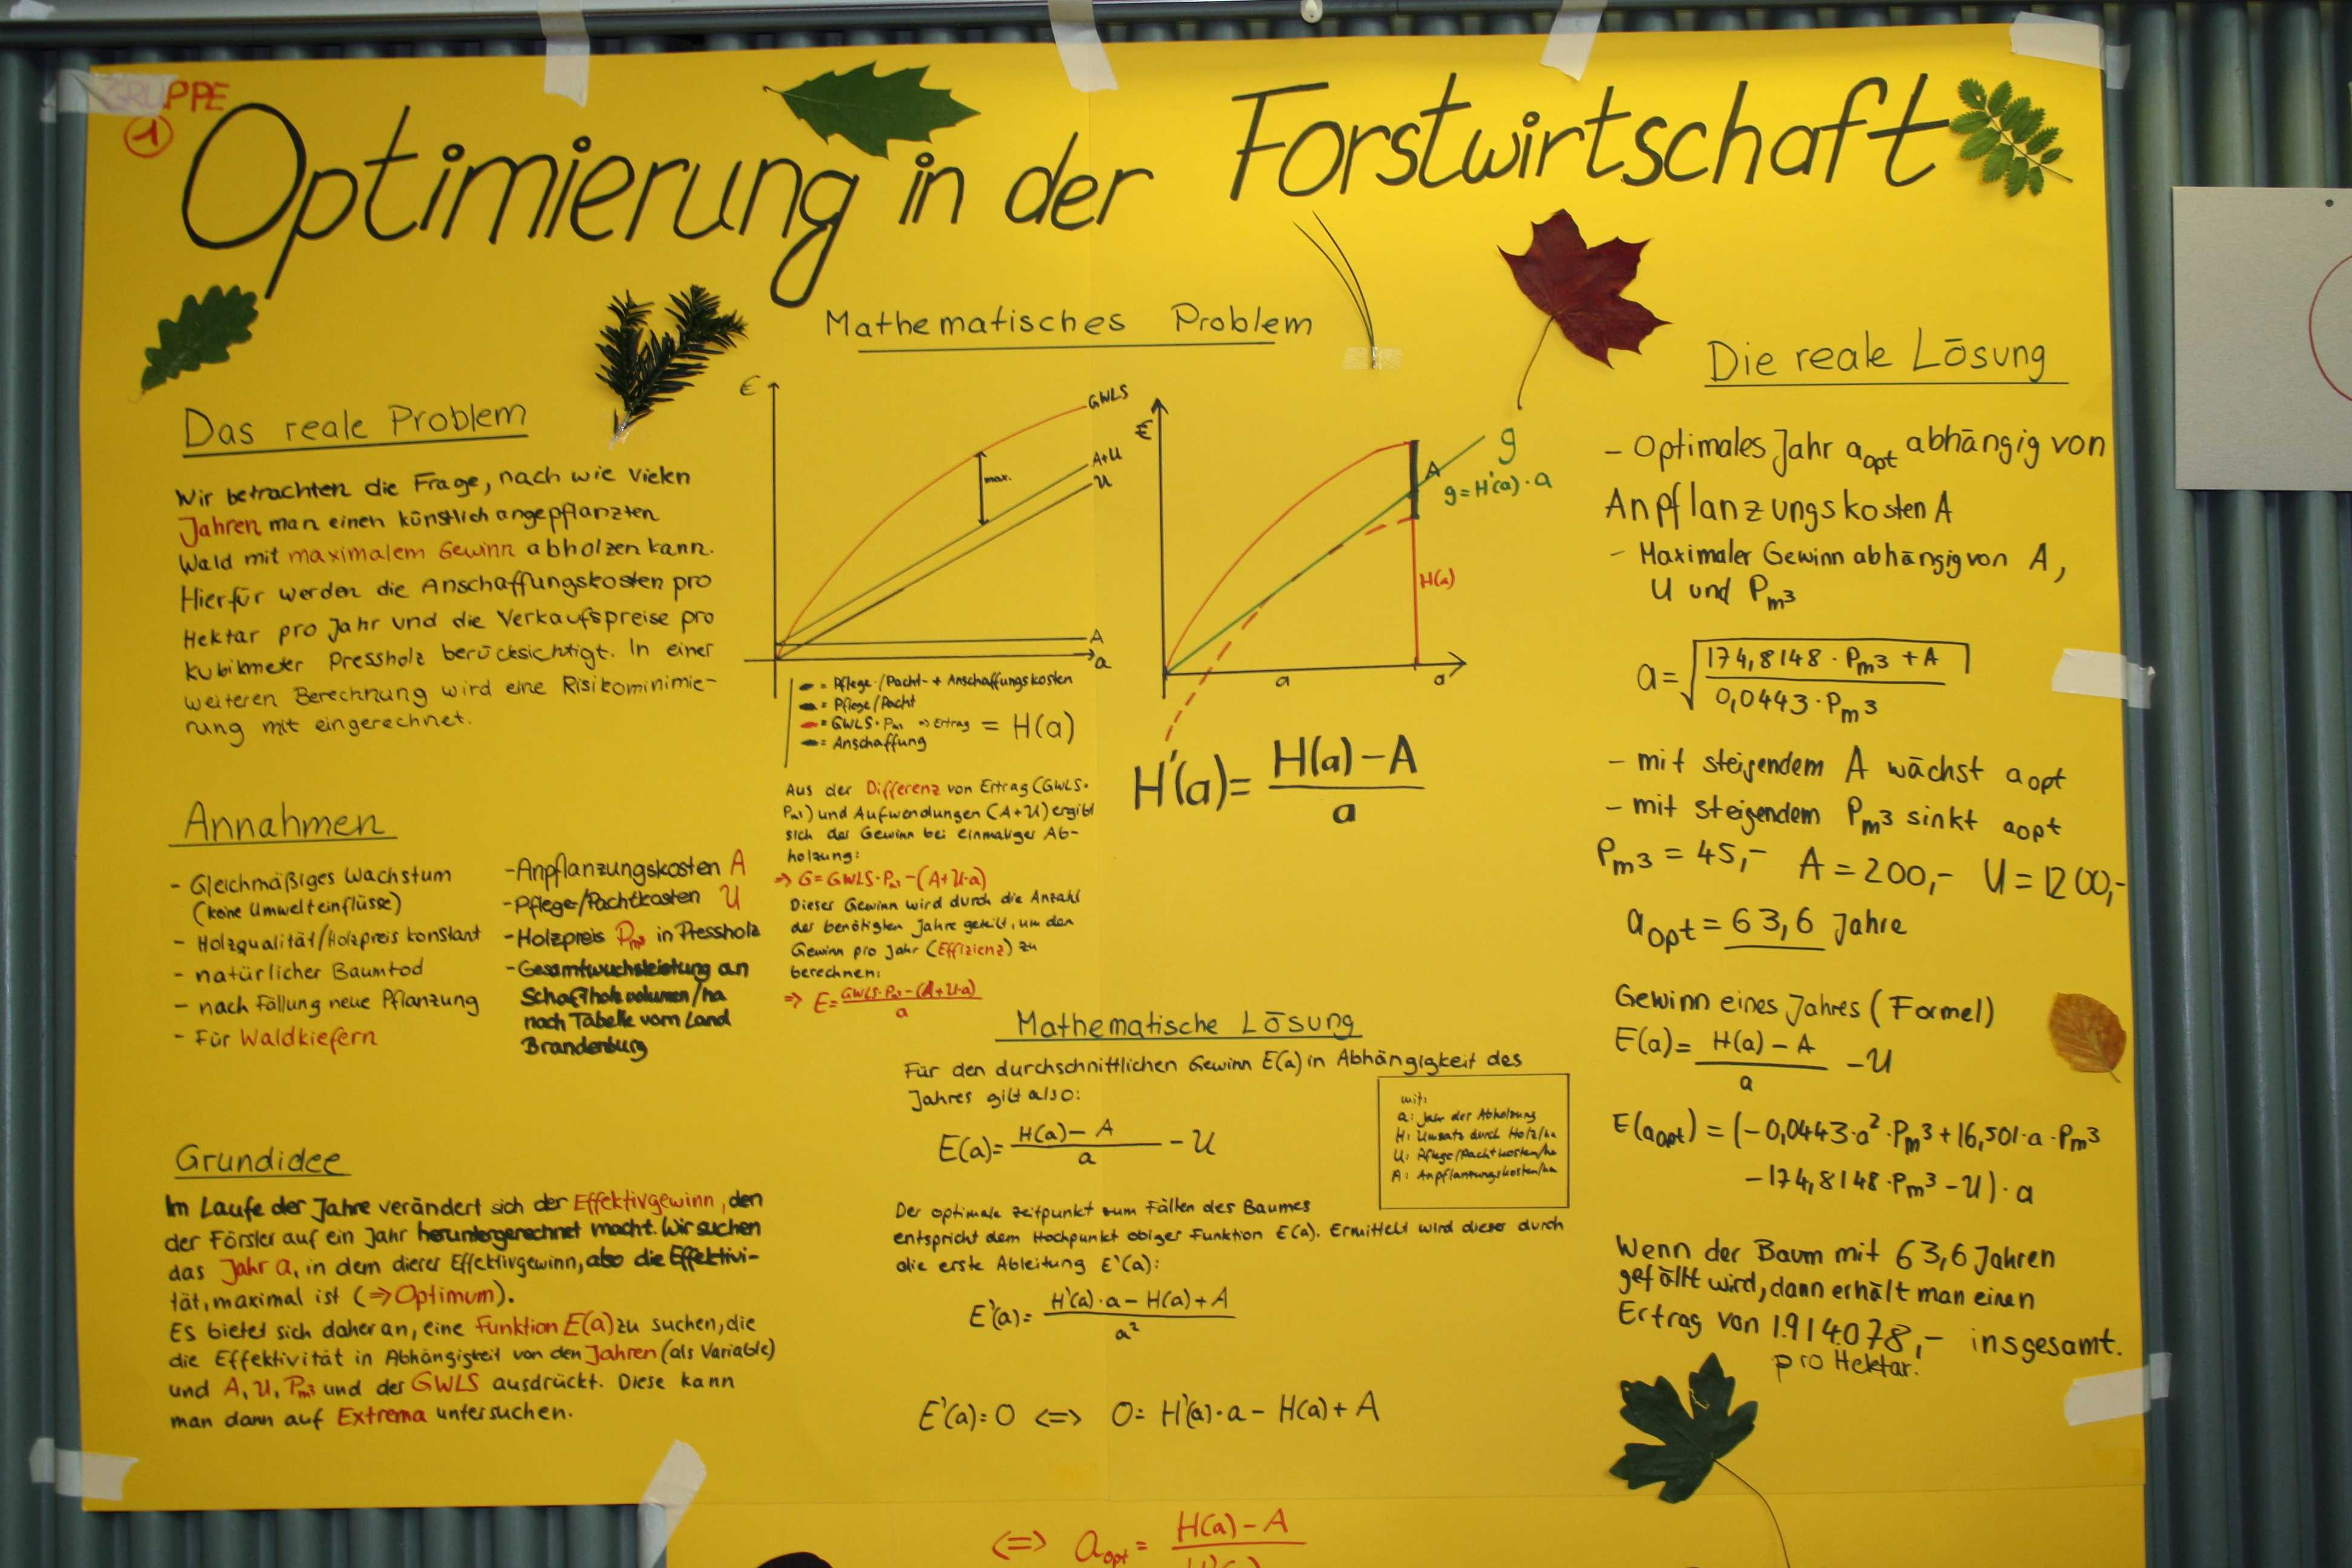 GRUPPE
1
Optimierung in der Forstwirtschaft
Das reale Problem
Wir betrachten die Frage, nach wie vielen
Jahren man einen künstlich angepflanzten
Wald mit maximalem Gewinn abholzen kann.
Hierfür werden die Anschaffungskosten pro
Hektar pro Jahr und die Verkaufspreise pro
Kubikmeter Pressholz berücksichtigt. In einer
weiteren Berechnung wird eine Risikominimie-
rung mit eingerechnet.
Annahmen
- Gleichmäßiges Wachstum
(keine Umwelteinflüsse)
- Holzqualität/Holzpreis konstant
- natürlicher Baumtod
- nach Fällung neue Pflanzung
- Für Waldkiefern
- Anpflanzungskosten A
- Pflege/Pachtkosten U
- Holzpreis Pm³ in Pressholz
- Gesamtwuchsleistung an
Schaftholzvolumen/ha
nach Tabelle vom Land
Brandenburg
Grundidee
Im Laufe der Jahre verändert sich der Effektivgewinn, den
der Förster auf ein Jahr heruntergerechnet macht. Wir suchen
das Jahr a, in dem dieser Effektivgewinn, also die Effektivi-
tät, maximal ist (⇒ Optimum).
Es bietet sich daher an, eine Funktion E(a) zu suchen, die
die Effektivität in Abhängigkeit von den Jahren (als Variable)
und A, U, Pm³ und der GWLS ausdrückt. Diese kann
man dann auf Extrema untersuchen.
Mathematisches Problem
€
GWLS
A+U
U
max.
A
a
= Pflege-/Pacht- + Anschaffungskosten
= Pflege/Pacht
= GWLS · Pm³ ⇒ Ertrag = H(a)
= Anschaffung
€
g
A
g = H'(a) · a
H(a)
a
a
H'(a) = (H(a) − A) / a
Aus der Differenz von Ertrag (GWLS ·
Pm³) und Aufwendungen (A+U) ergibt
sich der Gewinn bei einmaliger Ab-
holzung:
⇒ G = GWLS · Pm³ − (A + U · a)
Dieser Gewinn wird durch die Anzahl
der benötigten Jahre geteilt, um den
Gewinn pro Jahr (Effizienz) zu
berechnen:
⇒ E = (GWLS · Pm³ − (A + U · a)) / a
Mathematische Lösung
Für den durchschnittlichen Gewinn E(a) in Abhängigkeit des
Jahres gilt also:
E(a) = (H(a) − A) / a − U
mit:
a: Jahr der Abholzung
H: Umsatz durch Holz/ha
U: Pflege/Pachtkosten/ha
A: Anpflanzungskosten/ha
Der optimale Zeitpunkt zum Fällen des Baumes
entspricht dem Hochpunkt obiger Funktion E(a). Ermittelt wird dieser durch
die erste Ableitung E'(a):
E'(a) = (H'(a) · a − H(a) + A) / a²
E'(a) = 0 <=> 0 = H'(a) · a − H(a) + A
<=> aopt = H(a) − A
Die reale Lösung
- Optimales Jahr aopt abhängig von
Anpflanzungskosten A
- Maximaler Gewinn abhängig von A,
U und Pm³
a = √((174,8148 · Pm³ + A) / (0,0443 · Pm³))
- mit steigendem A wächst aopt
- mit steigendem Pm³ sinkt aopt
Pm³ = 45,- A = 200,- U = 1200,-
aopt = 63,6 Jahre
Gewinn eines Jahres (Formel)
E(a) = (H(a) − A) / a − U
E(aopt) = (−0,0443 · a² · Pm³ + 16,501 · a · Pm³
−174,8148 · Pm³ − U) · a
Wenn der Baum mit 63,6 Jahren
gefällt wird, dann erhält man einen
Ertrag von 1.914.078,- insgesamt.
pro Hektar.